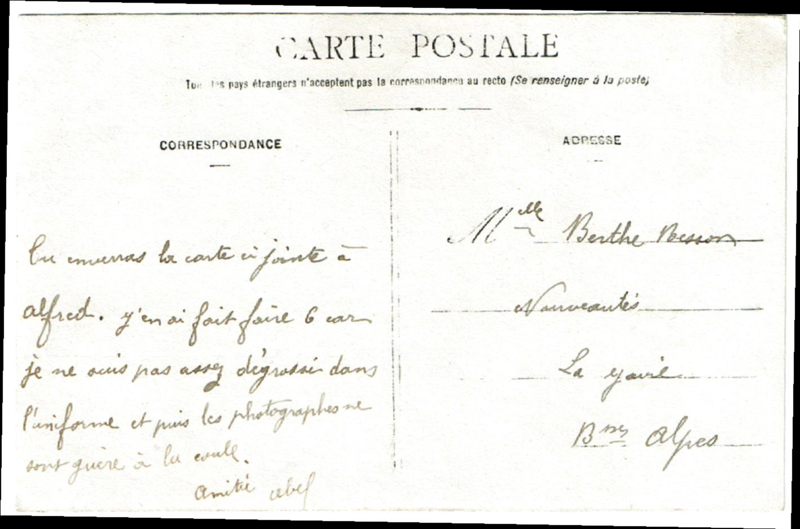 CARTE POSTALE
Tous les pays étrangers n'acceptent pas la correspondance au recto (Se renseigner à la poste)
CORRESPONDANCE
Tu enverras la carte ci jointe à
Alfred. J'en ai fait faire 6 car
je ne suis pas assez dégrossi dans
l'uniforme et puis les photographes ne
sont guère à la coule.
Amitié Abel
ADRESSE
Mlle Berthe Besson
Nouveautés
La Javie
Bses Alpes